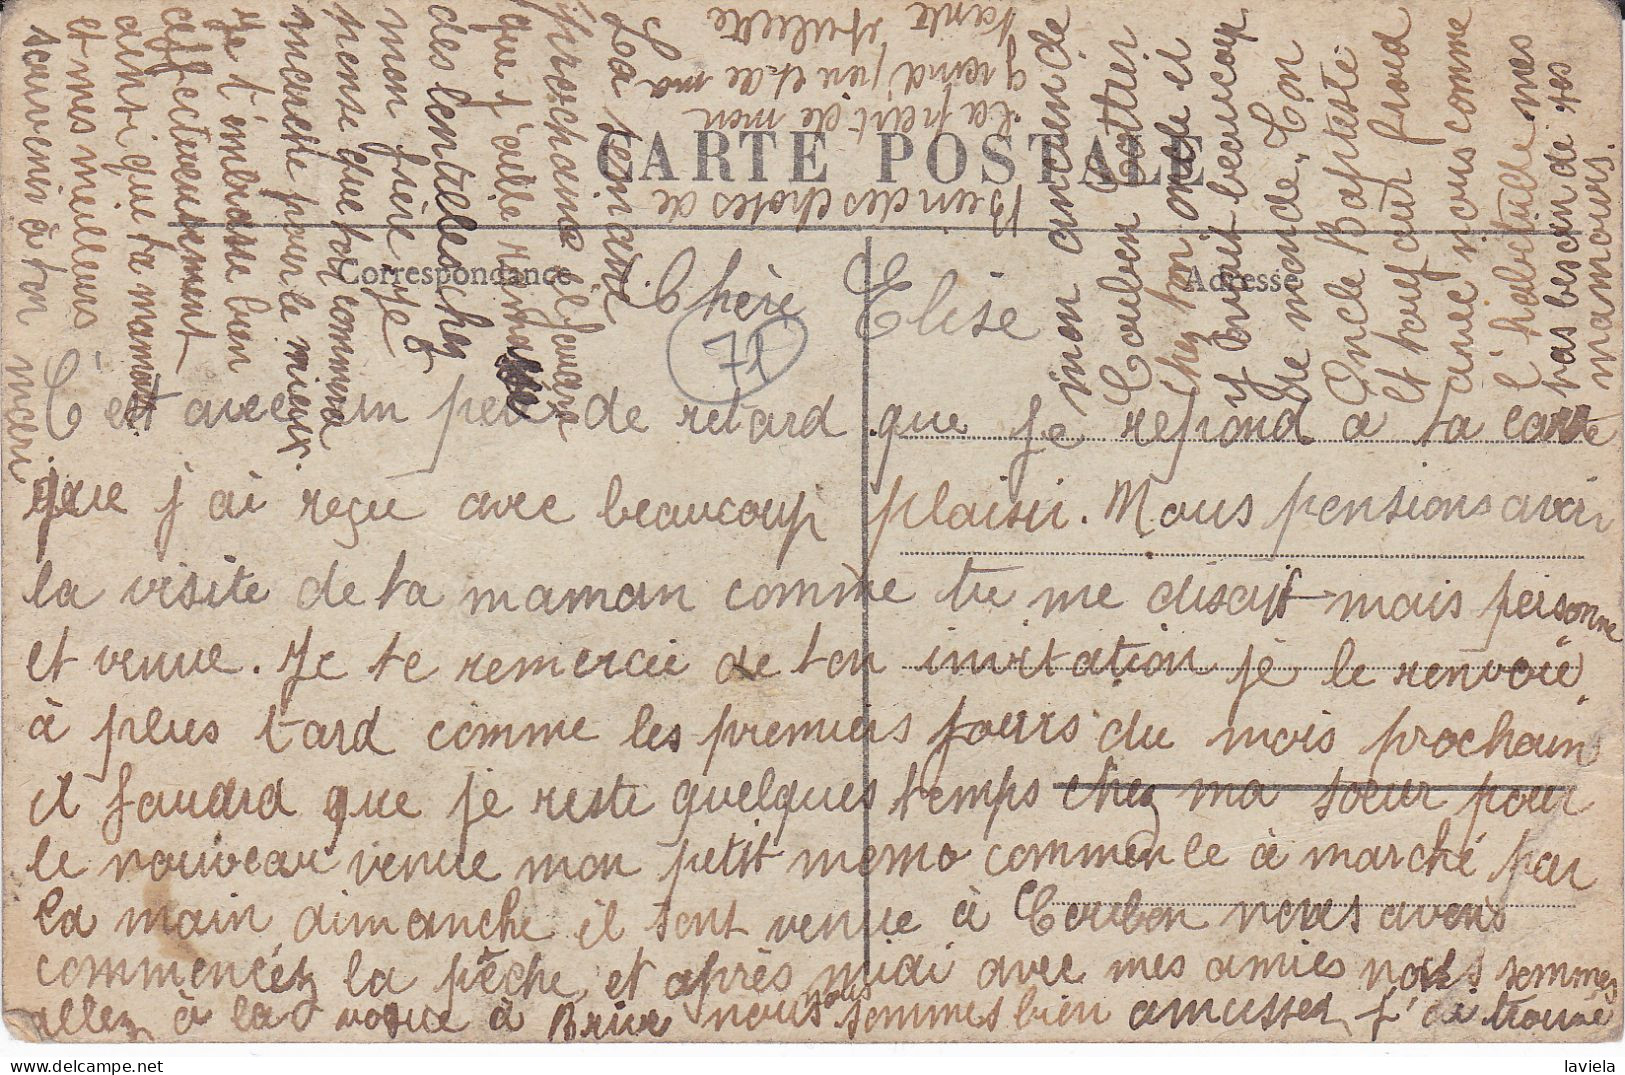 CARTE POSTALE
Correspondance
Adresse
71
Chère Elise
C'est avec un peu de retard que je repond a ta carte
que j'ai reçu avec beaucoup plaisir. Nous pensions avoir
la visite de ta maman comme tu me disait mais personne
et venue. Je te remercie de ton invitation je le renvoie
à plus tard comme les premiers jours du mois prochain
il faudrd que je reste quelques temps chez ma soeur pour
le nouveau venue mon petit memo commence à marché par
la main dimanche il sont venue à Couben nous avons
commencéz la pêche et après midi avec mes amies nous sommes
allez à la vogue à Briux nous nous sommes bien amussez j'ai trouvé
mon ancien de
Couben Gottier
chez ton oncle et
y buvait beaucoup
de monde. Ton
Oncle Baptiste
et toujour froid
avec nous comme
l'habitude mes
pas besoin de ses
mamours.
Bien des choses de
la part de mon
grand père et de ma
tante Juliette
La semaine
prochaine il faudra
que j'aille
des lentilles chez
mon frère je
pense que tout comme
va marche pour le mieux.
Je t'embrasse bien
affectueusement
ainsi que ta maman
et mes meilleurs
souvenir à ton mari
laviela